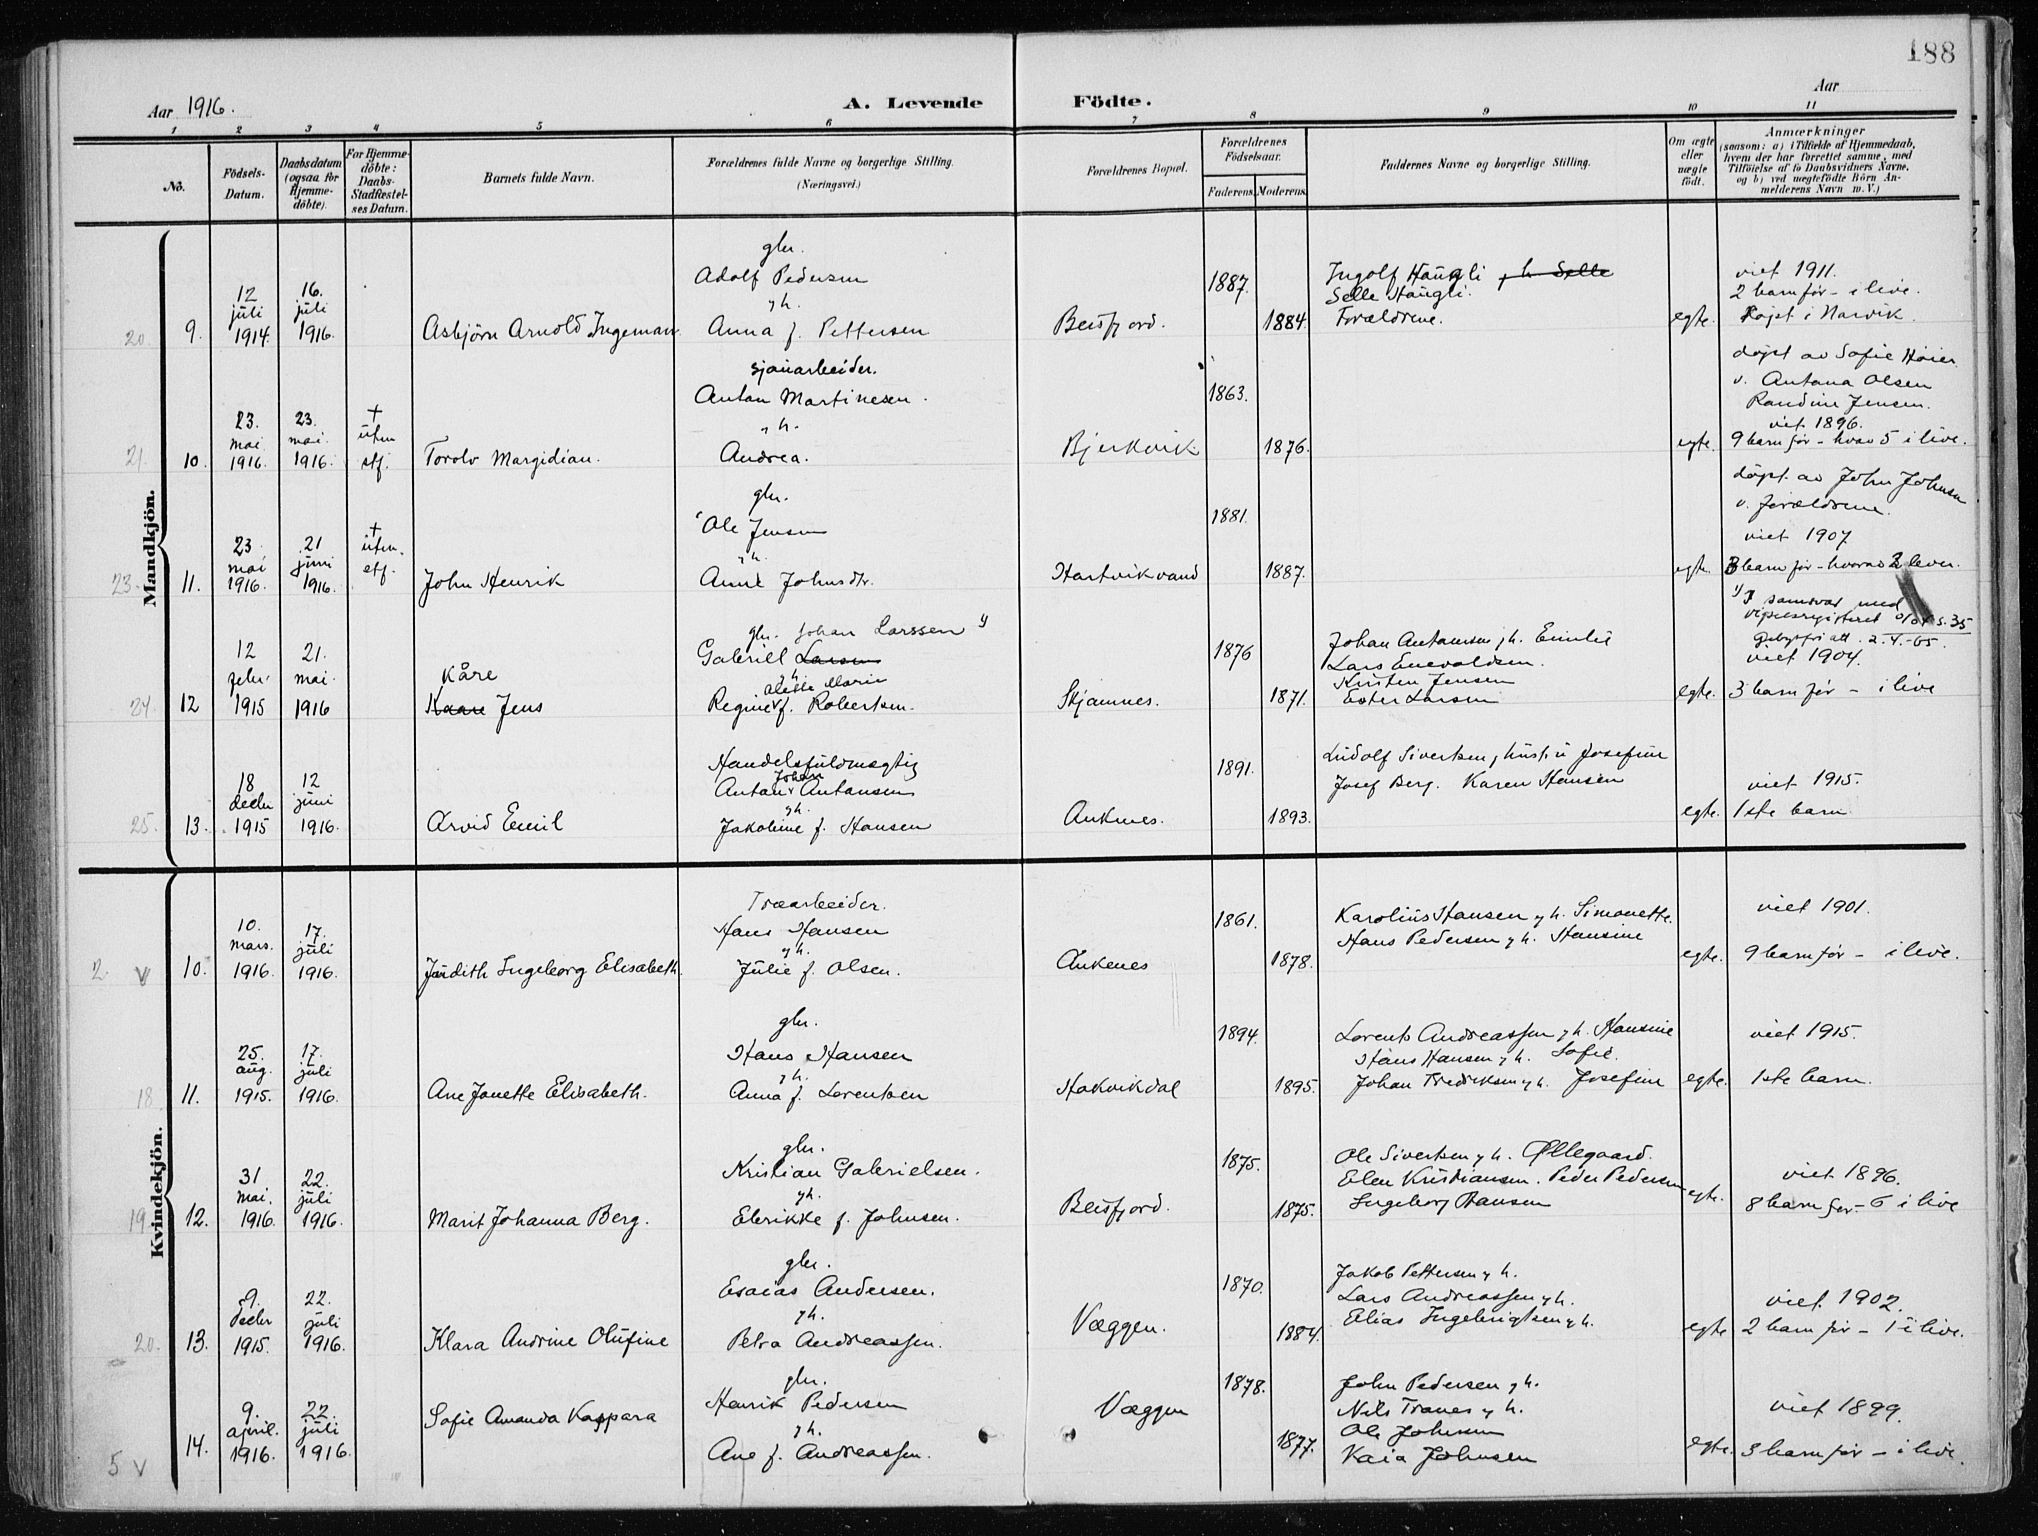 188
Aar 1916.
A. Levende Födte.
Aar
1 2 3 4 5 6 7 8 9 10 11
No.
Födsels-
Datum.
Daabsdatum
(ogsaa for
Hjemme-
döbte).
For Hjemme-
döbte:
Daabs-
Stadfæstel-
ses Datum.
Barnets fulde Navn.
Forældrenes fulde Navne og borgerlige Stilling.
(Næringsvei.)
Forældrenes Bopæl.
Forældrenes
Födselsaar.
Faderens. Moderens.
Faddernes Navne og borgerlige Stilling.
Om ægte
eller
uægte
födt.
Anmærkninger
(saasom: a) i Tilfælde af Hjemmedaab,
hvem der har forrettet samme, med
Tilföielse af to Daabsvidners Navne,
og b) ved uægtefödte Börn An-
melderens Navn m.V.)
Mandkjön.
20 9.
12 juli 1914.
16. juli 1916.
Asbjörn Arnold Ingeman.
gbr.
Adolf Pedersen
y h.
Anna f. Pettersen
Beisfjord.
1887.
1884.
Ingolf Haugli y h Selle
Selle Haugli.
Forældrene.
egte.
viet 1911.
2 barn før - i live.
Døpt i Narvik.
21. 10.
23. mai 1916.
23. mai. 1916.
+ uten stf.
Torolv Margidian.
sjauarbeider.
Anton Martinesen.
y h.
Andrea.
Bjerkvik
1863.
1876.
egte.
døpt av Sofie Høier
v. Antona Olsen
Randine Jensen.
viet 1896.
9 barn før - hvav 5 i live.
23. 11.
23 mai 1916.
21 juni 1916.
+ uten. stf.
John Henrik
gbr.
Ole Jensen
y h.
Anne Johnsdtr.
Hartvikvand
1881.
1887.
egte.
døpt. av John Johnsen
v. forældrene.
viet 1907
3 barn før - hvorav 2 lever.
24. 12
12 febr. 1915
21. mai. 1916
Kåre
Kaare Jens
gbr. Johan Larssen 1)
Gabriel Larsen
y h
Alette Marie
Regine f. Robertsen.
Skjomnes.
1876
1871.
Johan Antonsen y h. Emilie
Lars Enevoldsen.
Kristen Jensen
Ester Larsen
egte.
1) I samsvar med
vigselsregisteret 0/04 s. 35
fødselsatt. 2.4.-65.
viet 1904.
3 barn før - i live
25. 13.
18 decbr 1915
12 juni 1916.
Arvid Emil
Handelsfuldmægtig
Johan
Anton Antonsen
y h.
Jakobine f. Hansen
Ankenes.
1891.
1893.
Ludolf Sivertsen y hustru Josefine
Josef Berg. Karen Hansen
egte.
viet 1915.
1ste barn
Kvindekjön.
2 v 10.
10. mars. 1916.
17. juli 1916.
Judith Ingeborg Elisabeth.
Træarbeider.
Hans Hansen
y h.
Julie f. Olsen.
Ankenes
1861.
1878.
Karolius Hansen y h. Simonette.
Hans Pedersen y h. Hansine
egte.
viet 1901.
9 barn før - i live.
18 11.
25. aug. 1915.
17. juli 1916.
Ane Jonette Elisabeth.
gbr.
Hans Hansen
y h.
Anna f. Lorentsen
Hakvikdal
1894.
1895.
Lorents Andreassen y h. Hansine
Hans Hansen y h. Sofie.
Johan Fredriksen y h. Josefine
egte.
viet 1915.
1ste barn.
19 12.
31 mai. 1916.
22. juli 1916.
Marit Johanna Berg.
gbr.
Kristian Gabrielsen.
y h.
Elerikke f. Johnsen.
Beisfjord.
1875.
1875.
Ole Sivertsen y h. Øllegaard.
Elen Kristiansen. Peder Pedersen
Ingeborg Hansen
egte.
viet 1896.
8 barn før - 6 i live
20. 13.
9. decbr 1915.
22. juli 1916.
Klara Andrine Olufine
gbr.
Esaias Andersen.
y h.
Petra Andreassen.
Væggen.
1870.
1884.
Jakob Pettersen y h.
Lars Andreassen y h.
Elias Ingebrigtsen y h.
egte
viet. 1902.
2 barn før - 1 i live.
5 v 14.
9. april. 1916.
22. juli 1916.
Sofie Amanda Kaspara
gbr.
Henrik Pedersen
y h.
Ane f. Andreassen.
Væggen
1878.
1877.
John Pedersen y h.
Nils Tranes y h.
Ole Johnsen
Kaia Johnsen
egte.
viet 1899.
3 barn før - i live.